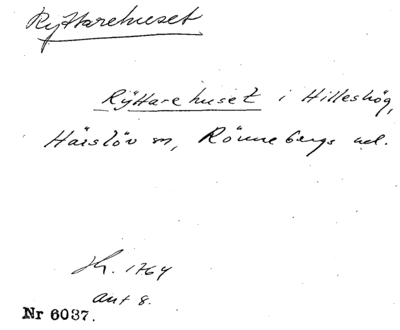 Ryttarehuset
Ryttarehuset i Hilleshög,
Härslöv sn, Rönnebergs hd.
1764
ant 8.
Nr 6037.